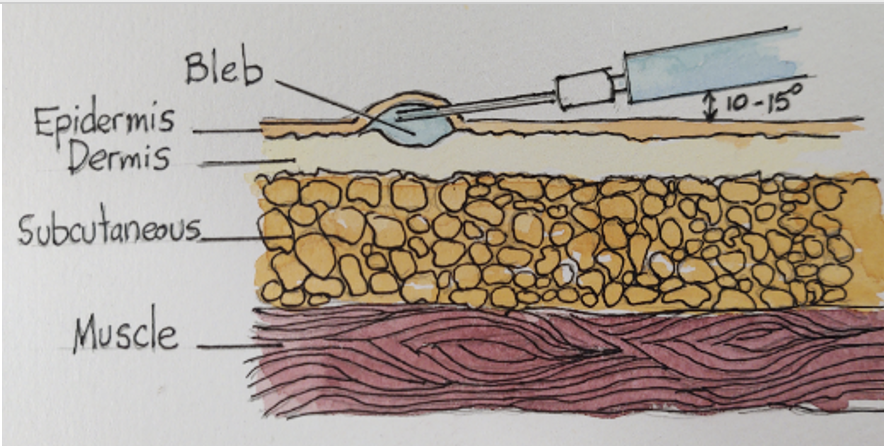 Bleb
10-15°
Epidermis
Dermis
Subcutaneous
Muscle